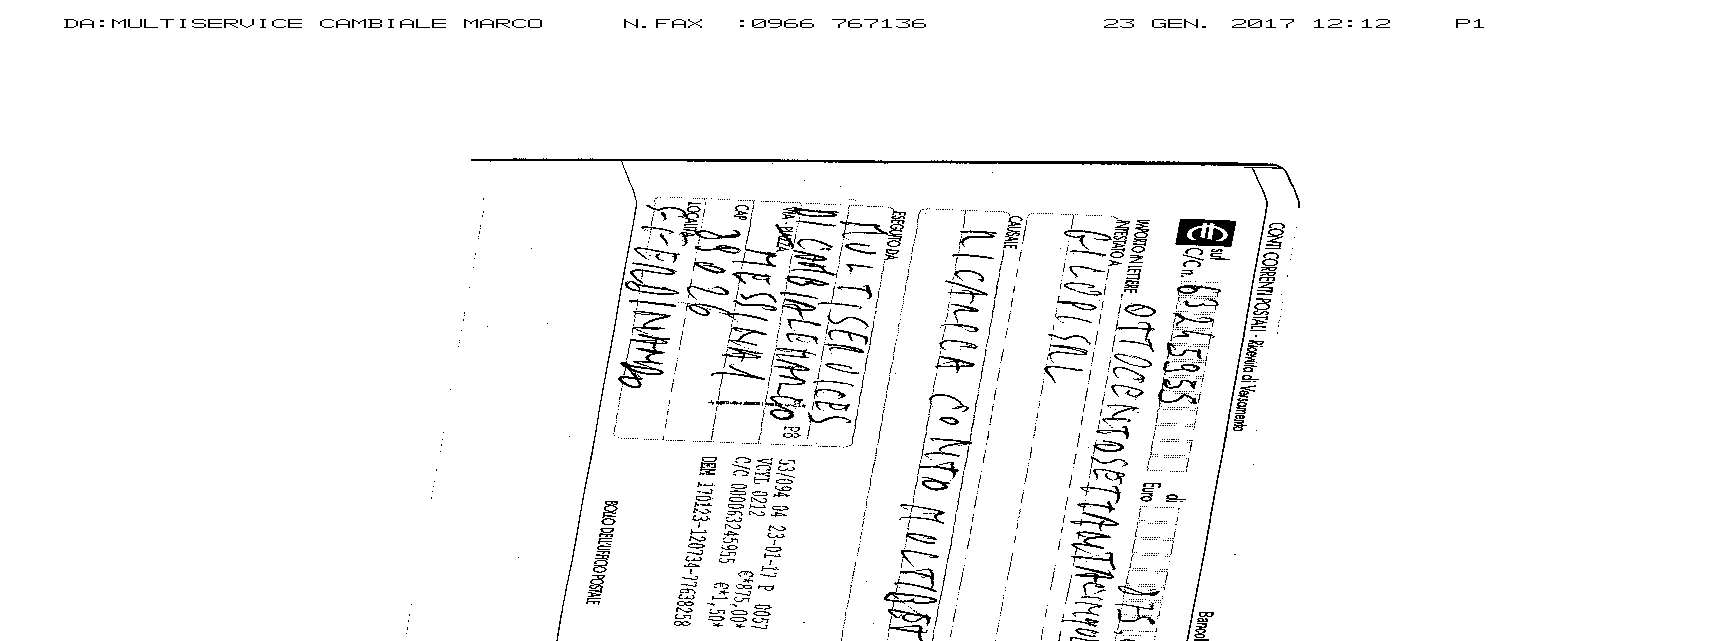 DA:MULTISERVICE CAMBIALE MARCO N.FAX :0966 767136 23 GEN. 2017 12:12 P1
CONTI CORRENTI POSTALI - Ricevuta di Versamento
sul C/C n. 63245955 di Euro 875,
IMPORTO IN LETTERE OTTOCENTOSETTANTACINQUE
INTESTATO A
CAUSALE
RICARICA CONTO
ESEGUITO DA
MULTISERVICES
DI CAMBIALE MARCO
VIA - PIAZZA
MESSINA 1
CAP 89026
LOCALITÀ
S. FERDINANDO
53/094 04 23-01-17 P 0057
VCYL 0212 €*875,00*
C/C 000063245955 €*1,50*
170123-120734-77638258
BOLLO DELL'UFFICIO POSTALE